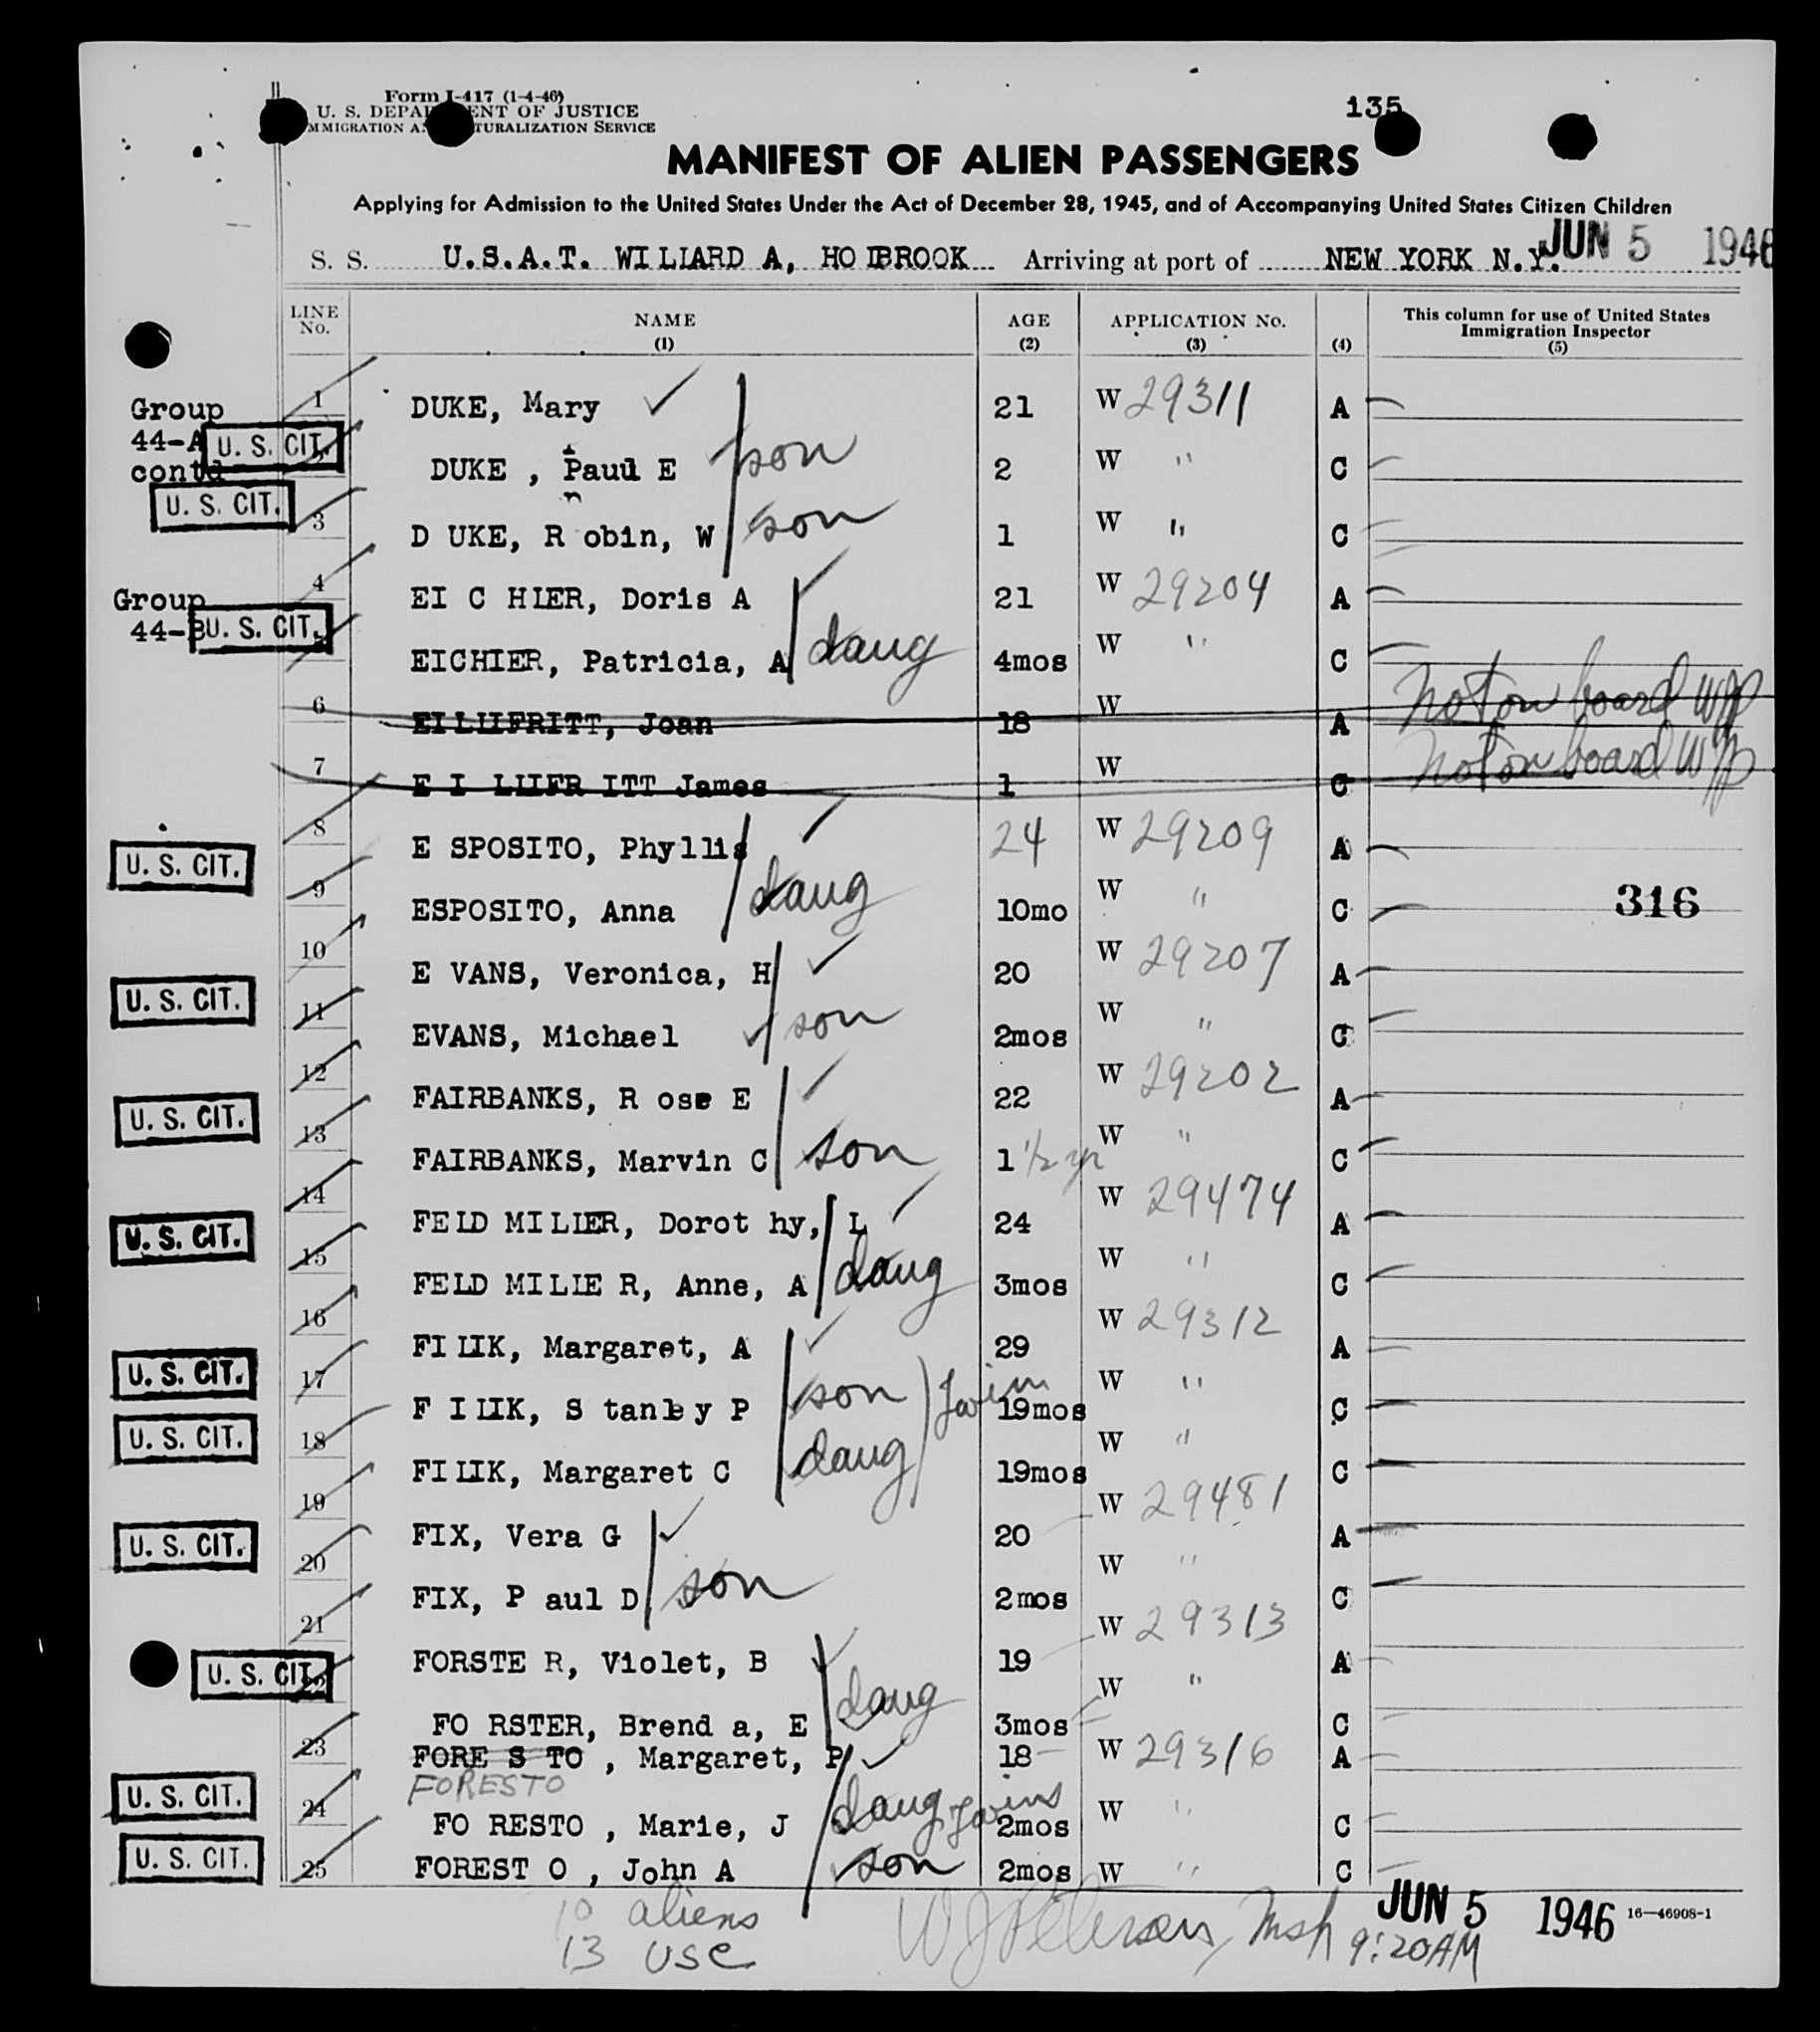 Form I-417 (1-4-46)
U. S. DEPA ENT OF JUSTICE
MMIGRATION A TURALIZATION SERVICE
135
MANIFEST OF ALIEN PASSENGERS
Applying for Admission to the United States Under the Act of December 28, 1945, and of Accompanying United States Citizen Children
S. S. U.S.A.T. WILLIARD A, HOLBROOK Arriving at port of NEW YORK N.Y. JUN 5 1946
LINE No. NAME (1) AGE (2) APPLICATION No. (3) (4) This column for use of United States Immigration Inspector (5)
Group 44-A contd
1 DUKE, Mary 21 W 29311 A
U. S. CIT. DUKE , Paul E son 2 W " C
U. S. CIT. 3 D UKE, R obin, W son 1 W " C
Group 44-B
4 EI C HLER, Doris A 21 W 29204 A
U. S. CIT. EICHLER, Patricia, A daug 4mos W " C
6 EILLIFRITT, Joan 18 W A Not on board WJP
7 E I LLIFR ITT James 1 W C Not on board WJP
8 E SPOSITO, Phyllis 24 W 29209 A
U. S. CIT. 9 ESPOSITO, Anna daug 10mo W " C 316
10 E VANS, Veronica, H 20 W 29207 A
U. S. CIT. 11 EVANS, Michael son 2mos W " C
12 FAIRBANKS, R ose E 22 W 29202 A
U. S. CIT. 13 FAIRBANKS, Marvin C son 1 1/2 yr W " C
14 FELD MILLER, Dorot hy, L 24 W 29474 A
U. S. CIT. 15 FELD MILLE R, Anne, A daug 3mos W " C
16 FI LIK, Margaret, A 29 W 29312 A
U. S. CIT. 17 F ILIK, S tanley P son Twins 19mos W " C
U. S. CIT. 18 FILIK, Margaret C daug 19mos W " C
19 FIX, Vera G 20 W 29481 A
U. S. CIT. 20 FIX, P aul D son 2mos W " C
21 FORSTE R, Violet, B 19 W 29313 A
U. S. CIT. 22 FO RSTER, Brend a, E daug 3mos W " C
23 FORE S TO , Margaret, P 18 W 29316 A
FORESTO
U. S. CIT. 24 FO RESTO , Marie, J daug Twins 2mos W " C
U. S. CIT. 25 FOREST O , John A son 2mos W " C
10 aliens
13 USC
JUN 5 1946 16—46908-1
9:20AM